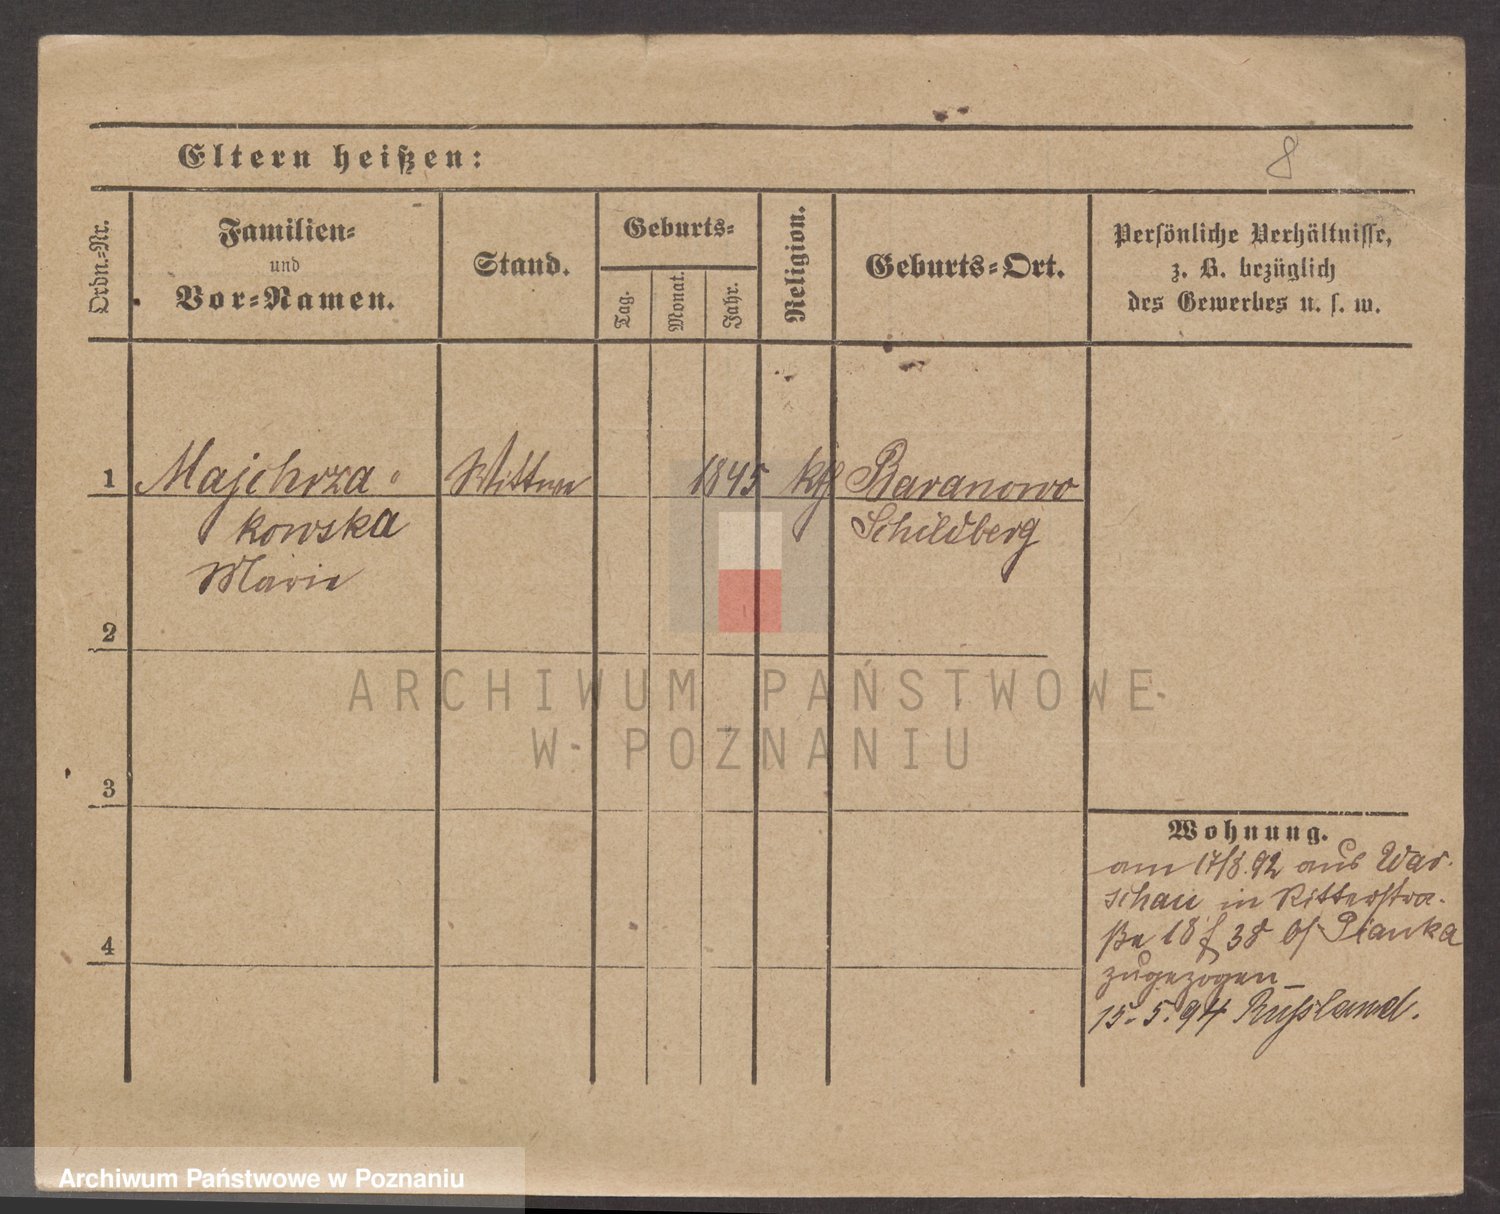 Eltern heißen:
8
Ordn.-Nr.
Familien-
und
Vor-Namen.
Stand.
Geburts-
Tag.
Monat.
Jahr.
Religion.
Geburts-Ort.
Persönliche Verhältnisse,
z. B. bezüglich
des Gewerbes u. s. w.
1 Majchrza- Wittwe 1845 kth Baranowo
kowska Schildberg
Marie
2
ARCHIWUM PAŃSTWOWE
W POZNANIU
3
Wohnung.
am 17/8.92 aus War-
schau in Ritterstra-
ße 18 38 Pianka
4
zugezogen
15.5.94 Russland.
Archiwum Państwowe w Poznaniu